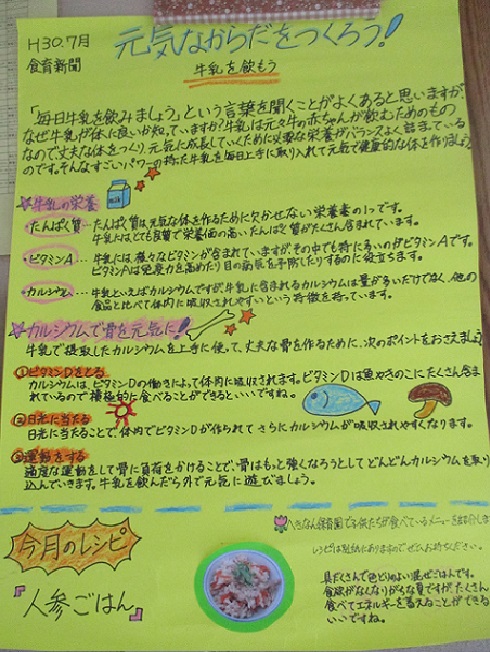 H30.7月
食育新聞
元気なからだをつくろう!
牛乳を飲もう
「毎日牛乳を飲みましょう」という言葉を聞くことがよくあると思いますが、
なぜ牛乳が体に良いか知っていますか?牛乳は元々牛の赤ちゃんが飲むためのもの
なので、丈夫な体をつくり、元気に成長していくために必要な栄養がバランスよく詰まっている
のです。そんなすごいパワーの持った牛乳を毎日上手に取り入れて元気で健康的な体を作りましょう
☆牛乳の栄養
・たんぱく質…たんぱく質は元気な体を作るために欠かせない栄養素の1つです。
牛乳にはとても良質で栄養価の高いたんぱく質がたくさん含まれています。
・ビタミンA…牛乳には様々なビタミンが含まれていますが、その中でも特に多いのがビタミンAです。
ビタミンAは免疫力を高めたり目の病気を予防したりするのに役立ちます。
・カルシウム…牛乳といえばカルシウムですが、牛乳に含まれるカルシウムは量が多いだけでなく、他の
食品と比べて体内に吸収されやすいという特徴を持っています。
☆カルシウムで骨を元気に!
牛乳で摂取したカルシウムを上手に使って、丈夫な骨を作るために、次のポイントをおさえましょう
①ビタミンDをとる
カルシウムは、ビタミンDの働きによって体内に吸収されます。ビタミンDは魚やきのこにたくさん含ま
れているので積極的に食べることができるといいですね。
②日光に当たる
日光に当たることで、体内でビタミンDが作られてさらにカルシウムが吸収されやすくなります。
③運動をする
適度な運動をして骨に負荷をかけることで、骨はもっと強くなろうとしてどんどんカルシウムを取り
込んでいきます。牛乳を飲んだら外で元気に遊びましょう。
今月のレシピ
『人参ごはん』
へきなん保育園で子供たちが食べているメニューを紹介します
レシピは別紙にありますのでぜひお持ちください。
具だくさんで色どりのよい混ぜごはんです。
食欲がなくなりがちな夏ですが、たくさん
食べてエネルギーを蓄えることができると
いいですね。